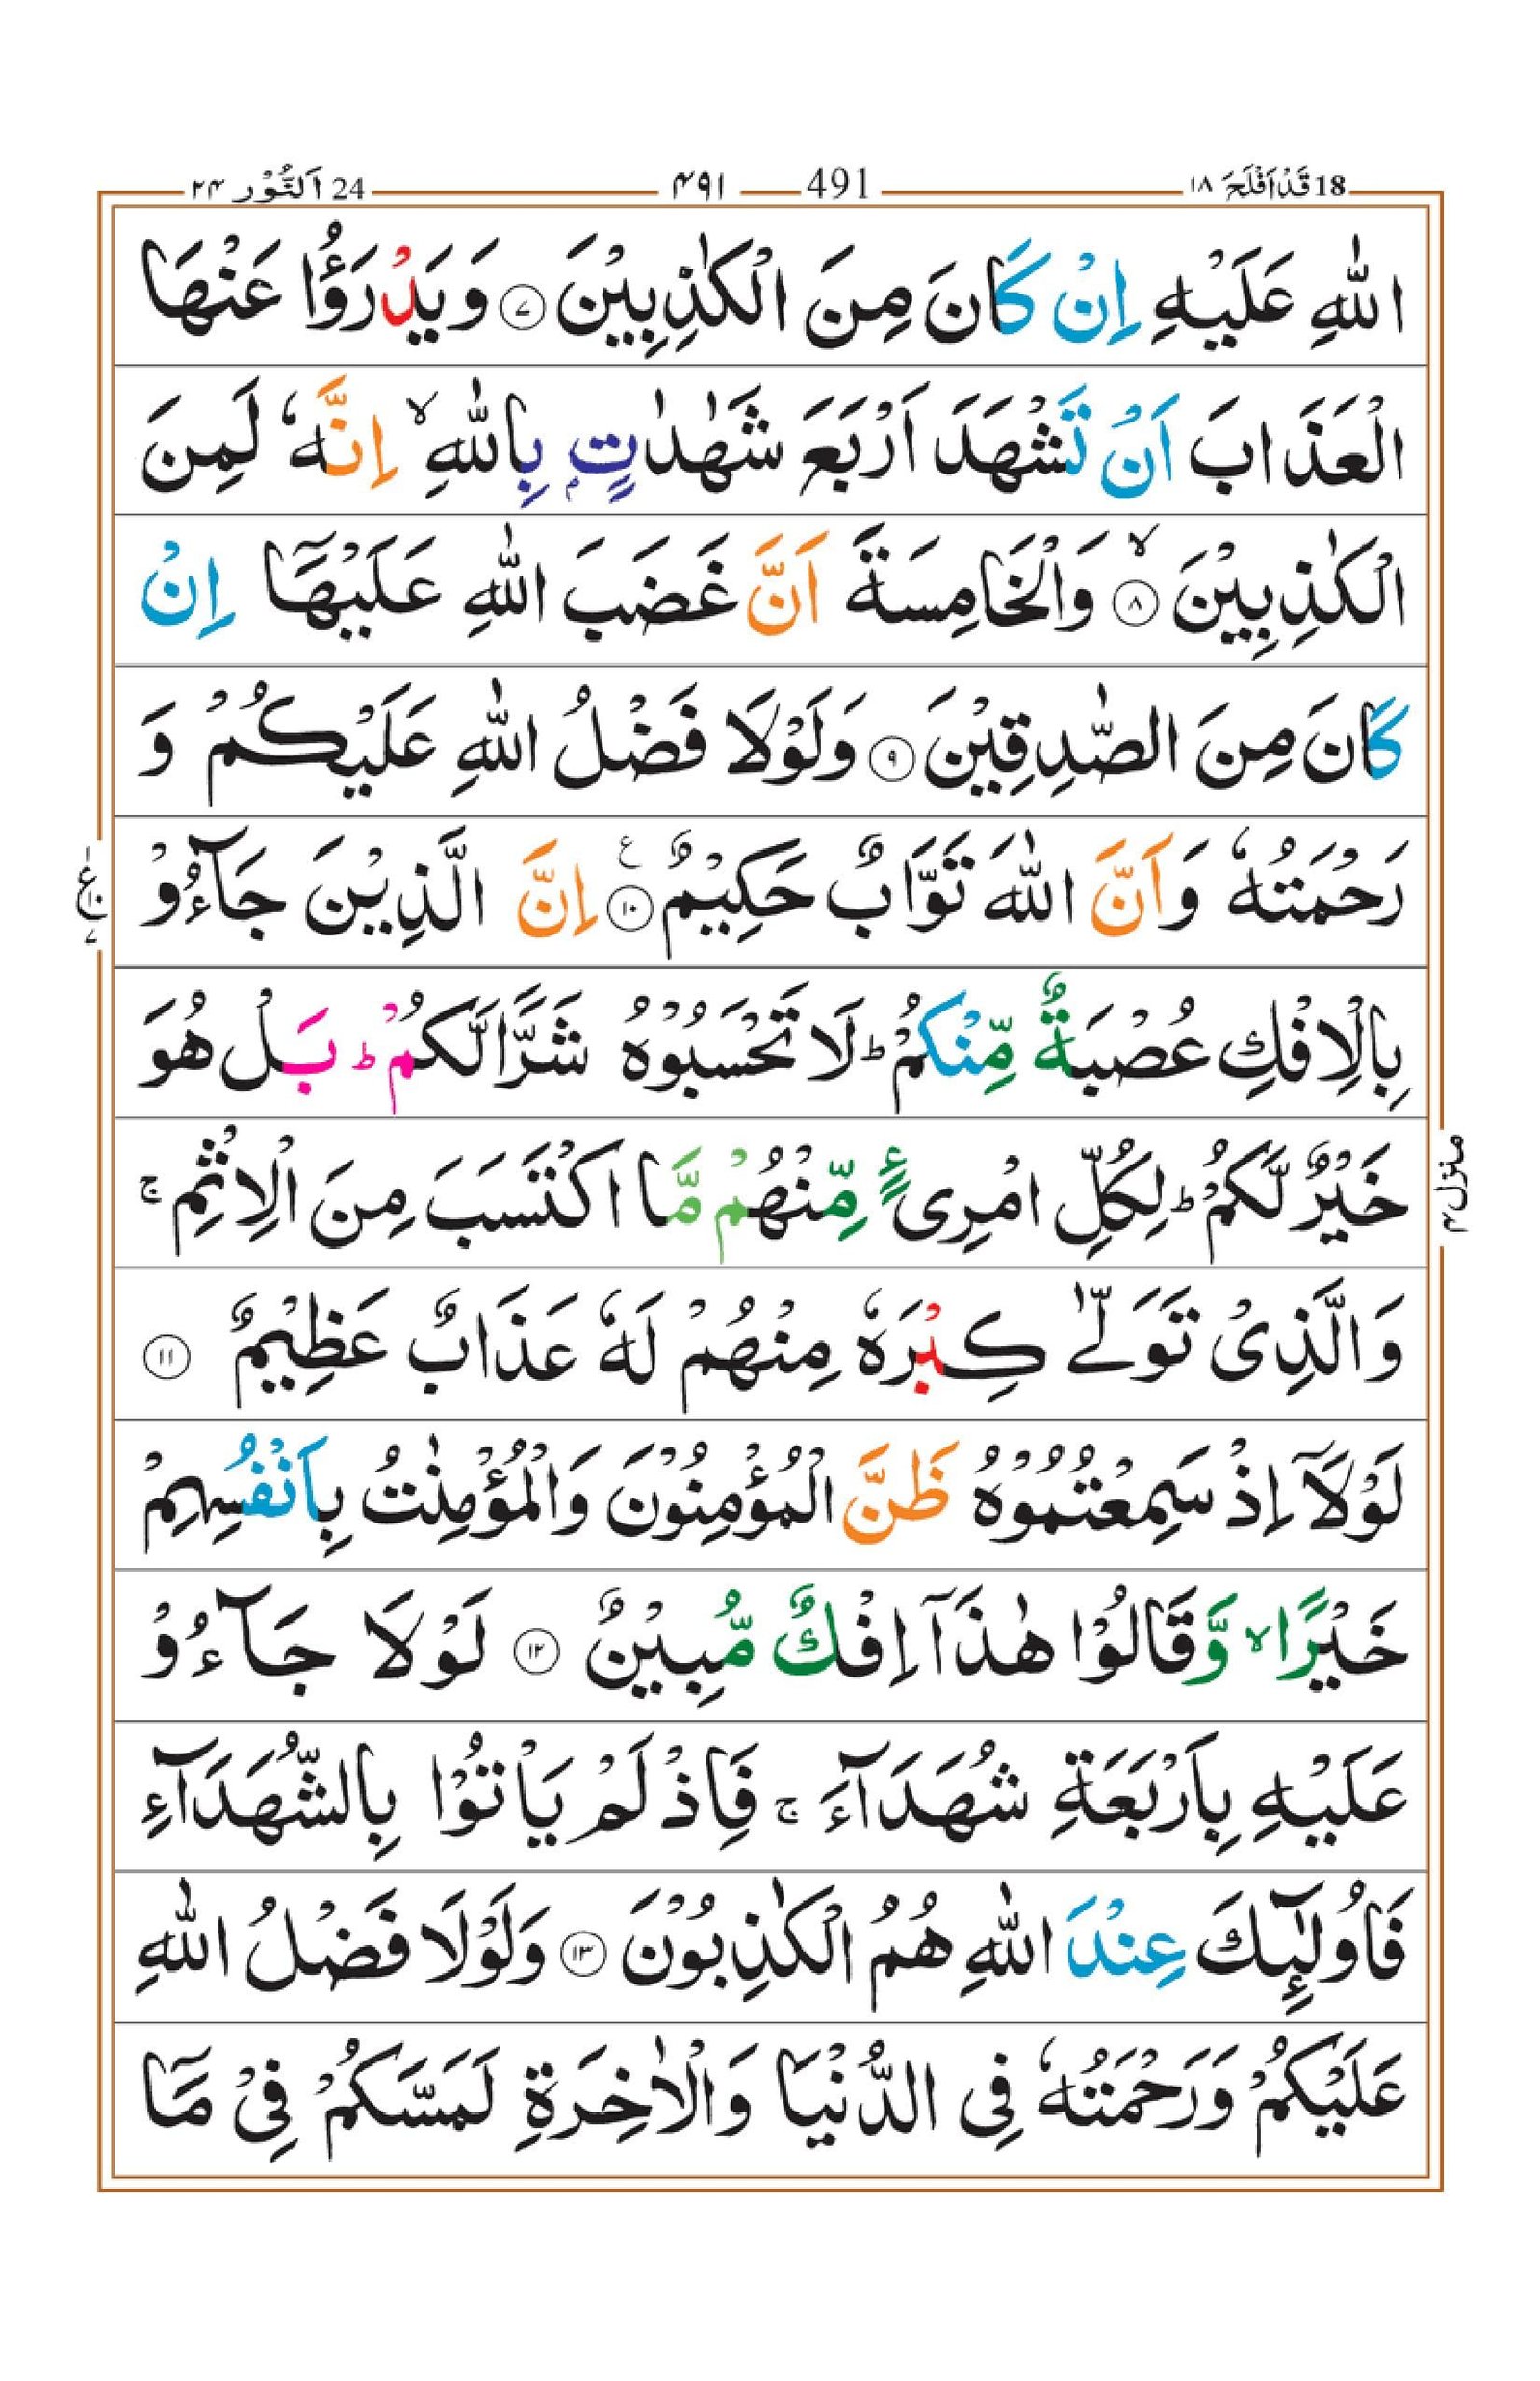 18 قَدْ اَفْلَحَ ١٨ 491 ۴۹۱ 24 اَلنُّوْر ۲۴
اللّٰهِ عَلَيْهِ اِنْ كَانَ مِنَ الْكٰذِبِيْنَ ۷ وَيَدْرَؤُا عَنْهَا
الْعَذَابَ اَنْ تَشْهَدَ اَرْبَعَ شَهٰدٰتٍۭ بِاللّٰهِ ۙ اِنَّهٗ لَمِنَ
الْكٰذِبِيْنَ ۙ ۸ وَالْخَامِسَةَ اَنَّ غَضَبَ اللّٰهِ عَلَيْهَآ اِنْ
كَانَ مِنَ الصّٰدِقِيْنَ ۹ وَلَوْلَا فَضْلُ اللّٰهِ عَلَيْكُمْ وَ
رَحْمَتُهٗ وَاَنَّ اللّٰهَ تَوَّابٌ حَكِيْمٌ ۱۰ ع اِنَّ الَّذِيْنَ جَآءُوْ
بِالْاِفْكِ عُصْبَةٌ مِّنْكُمْ ؕ لَا تَحْسَبُوْهُ شَرًّا لَّكُمْ ؕ بَلْ هُوَ
خَيْرٌ لَّكُمْ ؕ لِكُلِّ امْرِئٍ مِّنْهُمْ مَّا اكْتَسَبَ مِنَ الْاِثْمِ ۚ
وَالَّذِيْ تَوَلّٰى كِبْرَهٗ مِنْهُمْ لَهٗ عَذَابٌ عَظِيْمٌ ۱۱
لَوْلَآ اِذْ سَمِعْتُمُوْهُ ظَنَّ الْمُؤْمِنُوْنَ وَالْمُؤْمِنٰتُ بِاَنْفُسِهِمْ
خَيْرًا ۙ وَّقَالُوْا هٰذَآ اِفْكٌ مُّبِيْنٌ ۱۲ لَوْلَا جَآءُوْ
عَلَيْهِ بِاَرْبَعَةِ شُهَدَآءَ ۚ فَاِذْ لَمْ يَاْتُوْا بِالشُّهَدَآءِ
فَاُولٰٓئِكَ عِنْدَ اللّٰهِ هُمُ الْكٰذِبُوْنَ ۱۳ وَلَوْلَا فَضْلُ اللّٰهِ
عَلَيْكُمْ وَرَحْمَتُهٗ فِى الدُّنْيَا وَالْاٰخِرَةِ لَمَسَّكُمْ فِيْ مَآ
منزل ۴